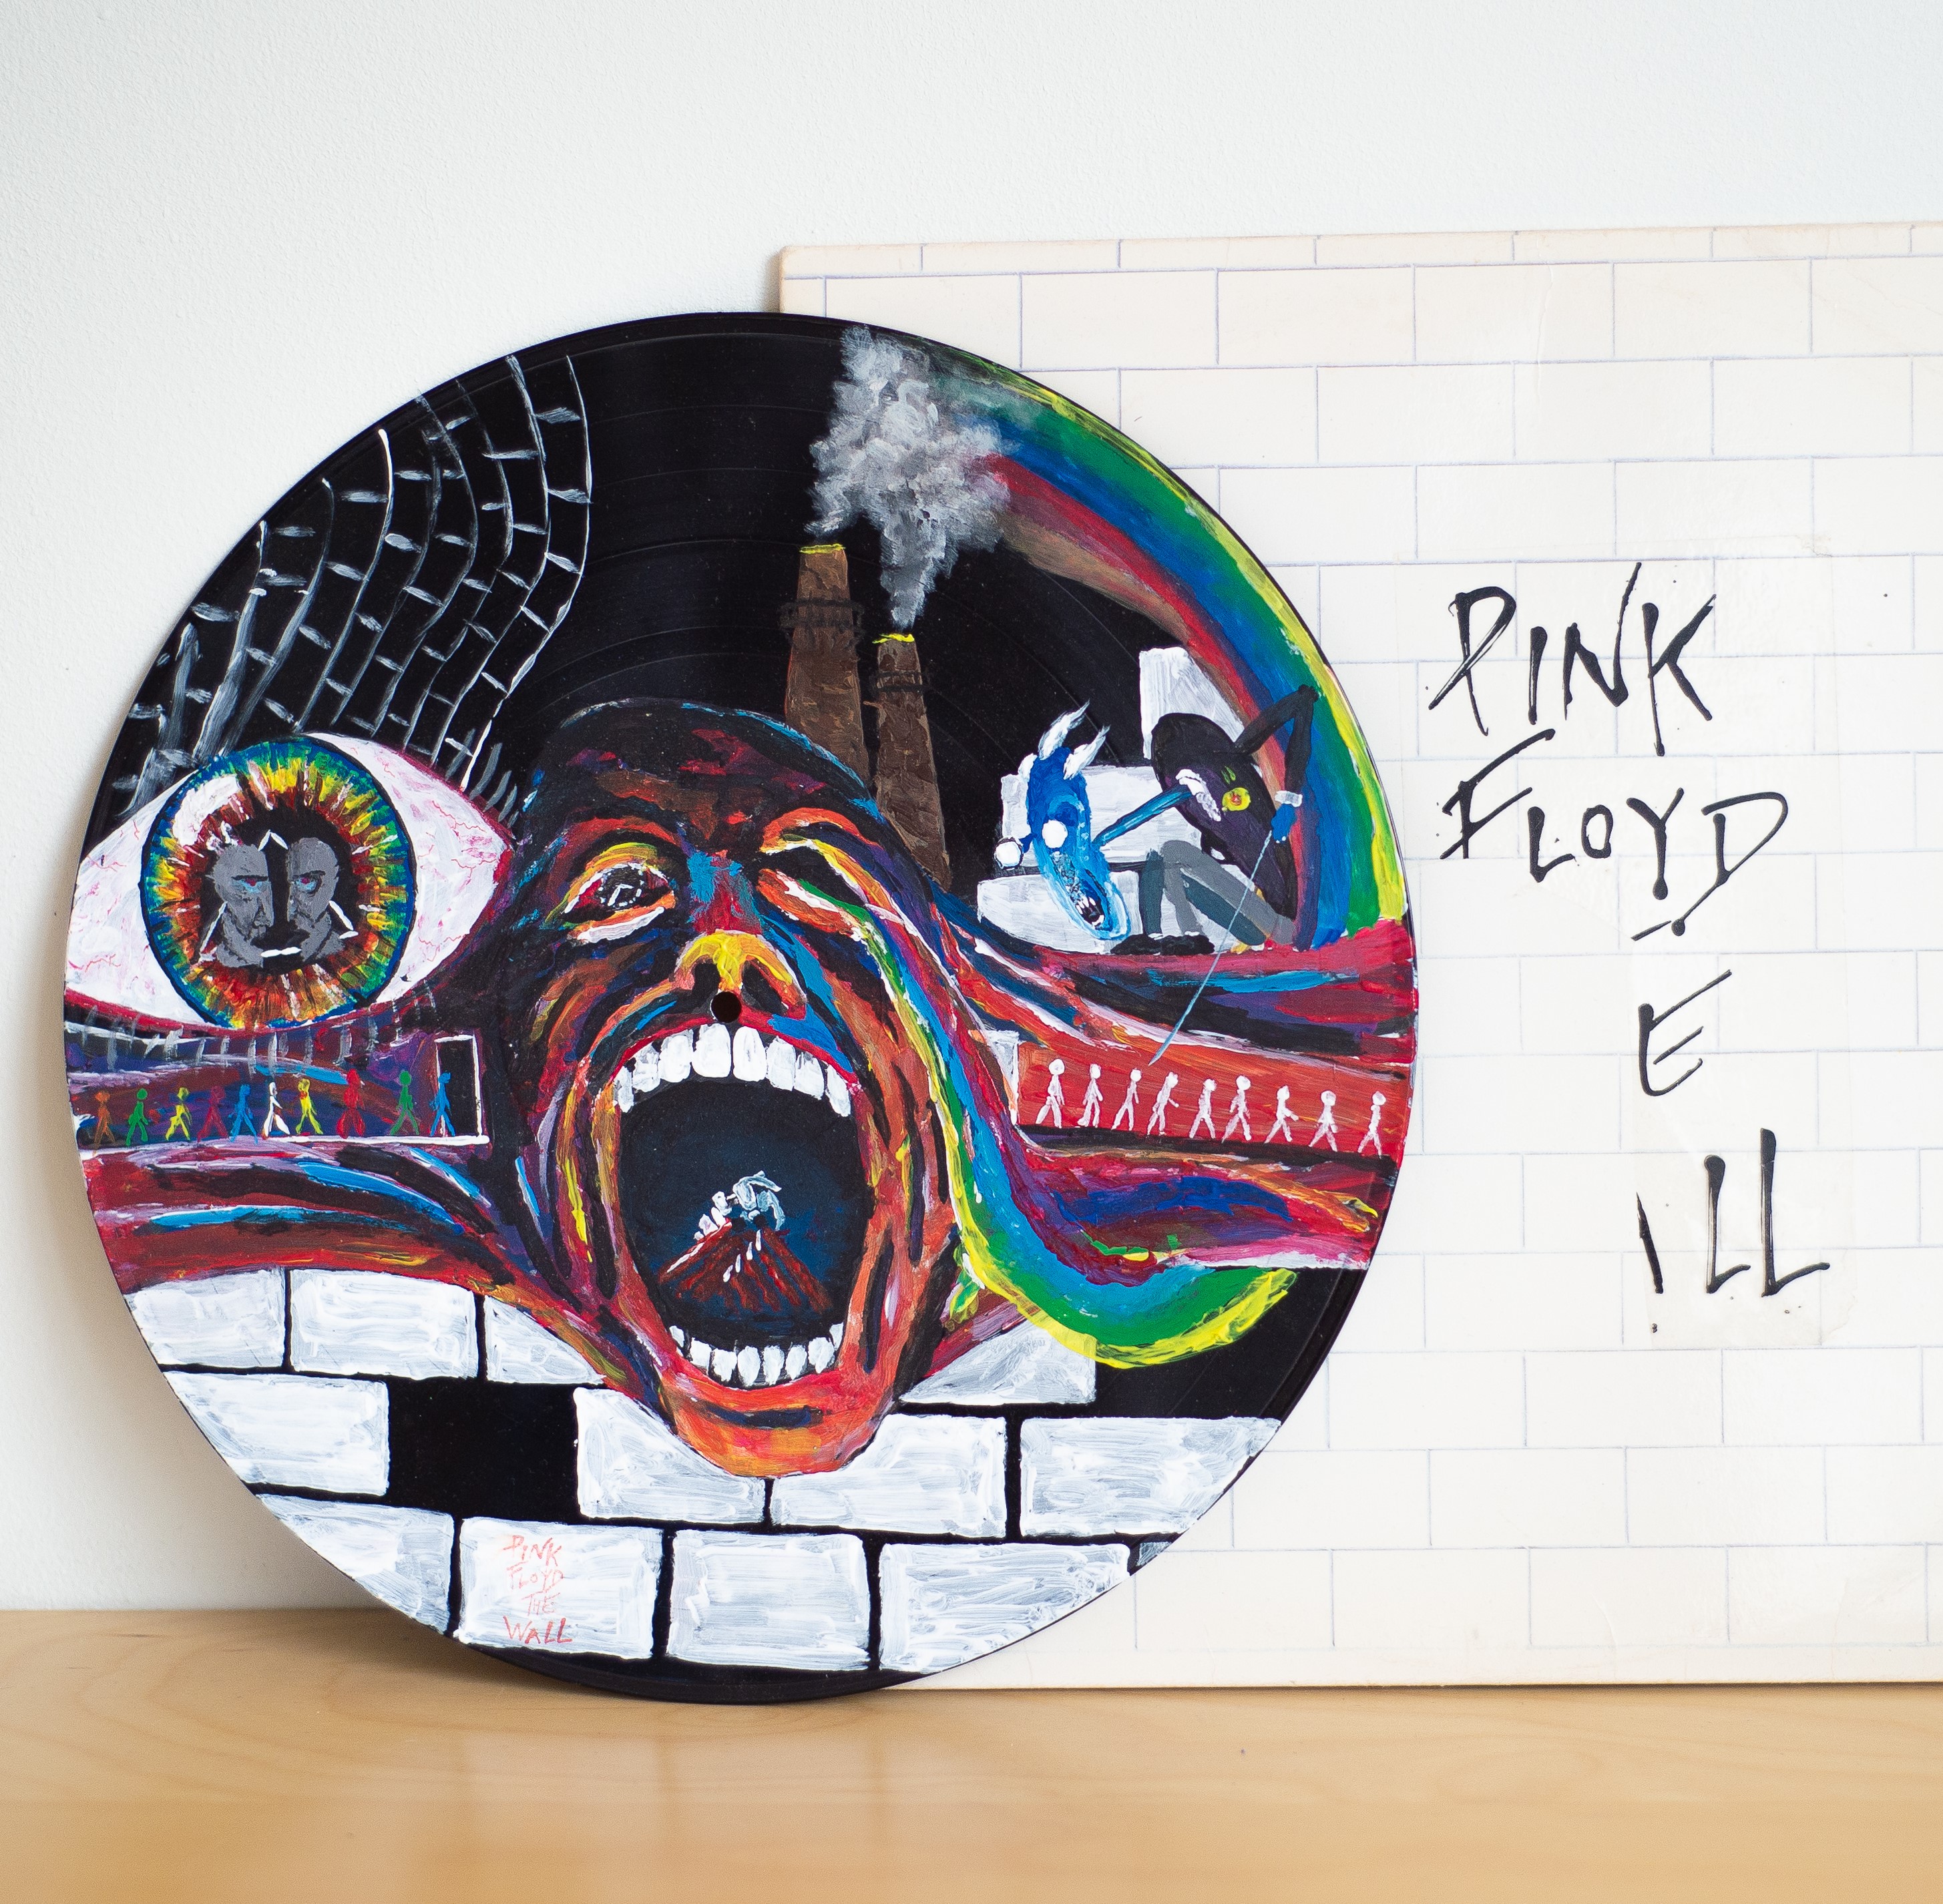 PINK
FLOYD
E
ILL
PINK
FLOYD
THE
WALL